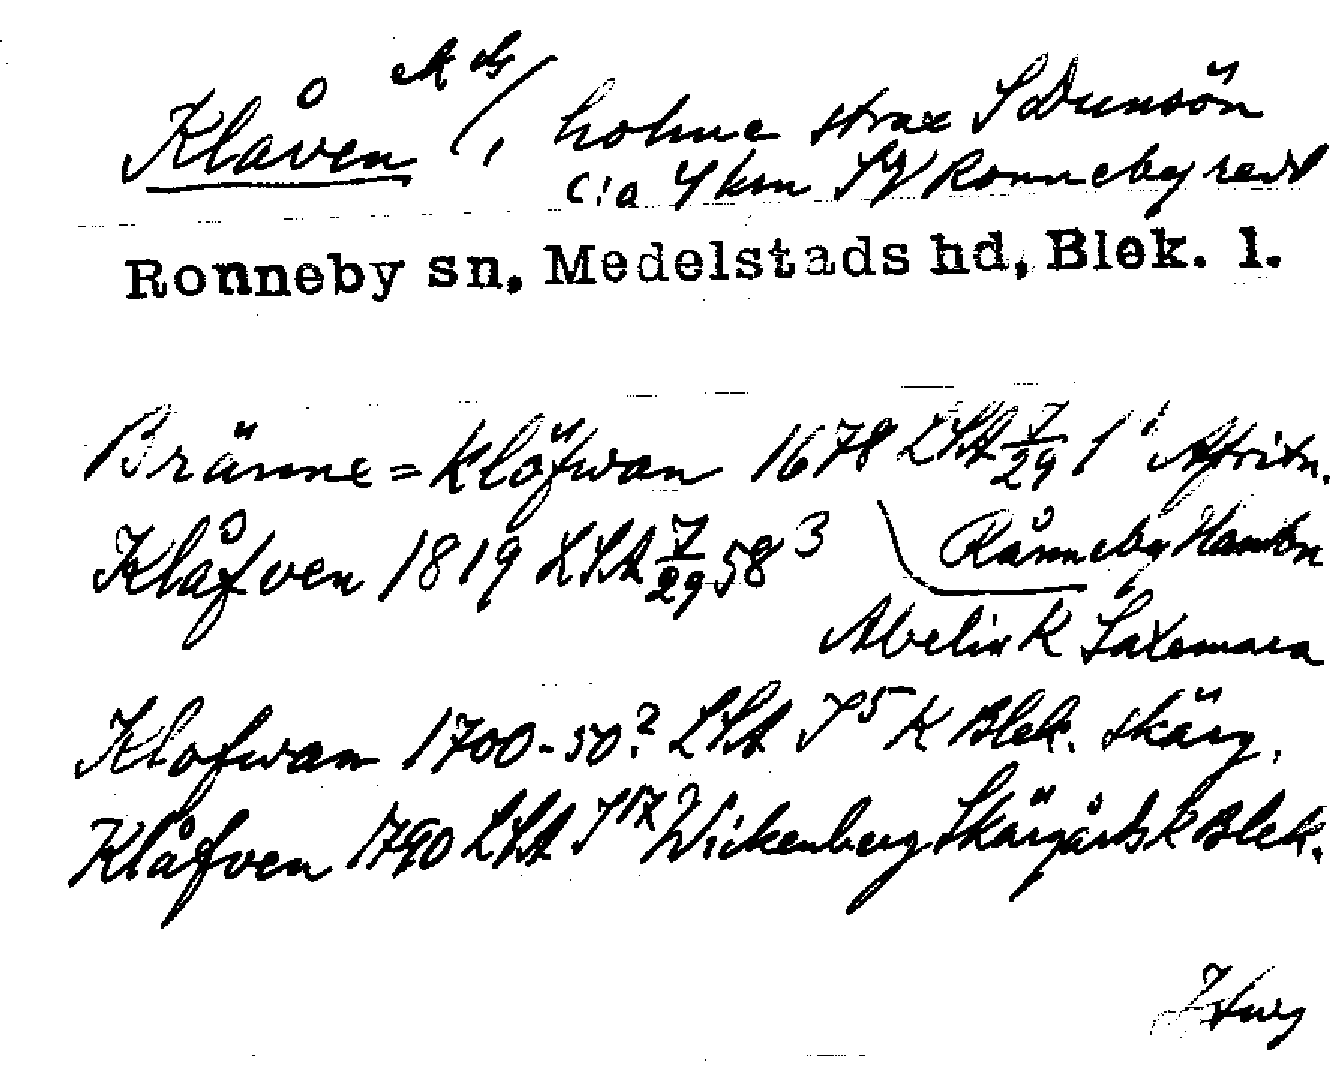 Klåven /, holme strax S Dunsön
c:a 4 km SV Ronneby redd
Ronneby sn, Medelstads hd, Blek. l.
Bränne=Klöfwan 1678 LSA 7/29 1 1 Afritn.
Klåfven 1819 LSA 7/29 58 3 Rånneby Hambn
Abelin K Saxemara
Klofwan 1700-50? LSA I 5 K Blek. skärg.
Klåfven 1790 LSA I 17 Wickenberg Skärgårds K Blek.